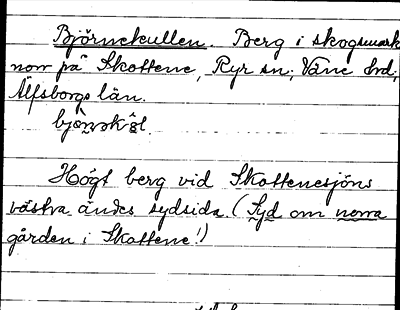 Björnekullen. Berg i skogsmark
norr på Skottene, Ryr sn; Väne hd;
Älfsborgs län.
Högt berg vid Skottenesjöns
västra ändes sydsida. (Syd om norra
gården i Skottene!)